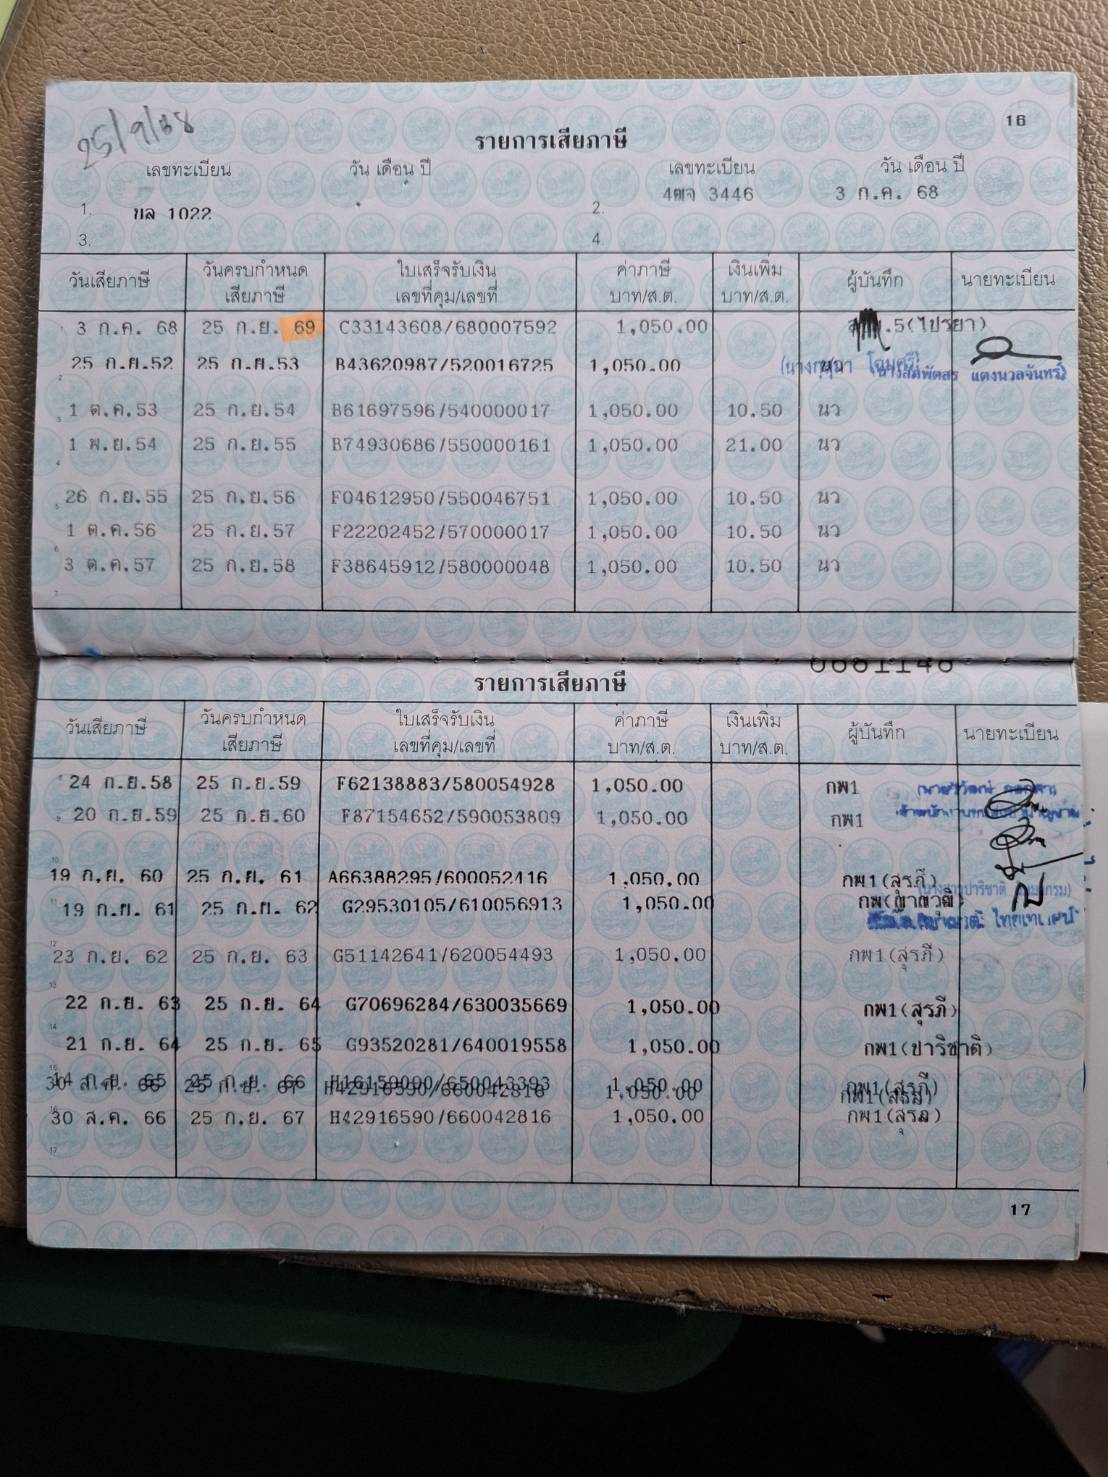 25/9/68
16
รายการเสียภาษี
เลขทะเบียน วัน เดือน ปี เลขทะเบียน วัน เดือน ปี
1. ษล 1022 2. 4ฒจ 3446 3 ก.ค. 68
3. 4.
วันเสียภาษี วันครบกำหนดเสียภาษี ใบเสร็จรับเงิน เลขที่คุม/เลขที่ ค่าภาษี บาท/ส.ต. เงินเพิ่ม บาท/ส.ต. ผู้บันทึก นายทะเบียน
3 ก.ค. 68 25 ก.ย. 69 C33143608/680007592 1,050.00 .5(ไปรยา)
25 ก.ย.52 25 ก.ย.53 B43620987/520016725 1,050.00 แดงนวลจันทร์)
1 ต.ค.53 25 ก.ย.54 B61697596/540000017 1,050.00 10.50 นว
1 พ.ย.54 25 ก.ย.55 B74930686/550000161 1,050.00 21.00 นว
26 ก.ย.55 25 ก.ย.56 F04612950/550046751 1,050.00 10.50 นว
1 ต.ค.56 25 ก.ย.57 F22202452/570000017 1,050.00 10.50 นว
3 ต.ค.57 25 ก.ย.58 F38645912/580000048 1,050.00 10.50 นว
รายการเสียภาษี
วันเสียภาษี วันครบกำหนดเสียภาษี ใบเสร็จรับเงิน เลขที่คุม/เลขที่ ค่าภาษี บาท/ส.ต. เงินเพิ่ม บาท/ส.ต. ผู้บันทึก นายทะเบียน
24 ก.ย.58 25 ก.ย.59 F62138883/580054928 1,050.00 กพ1
20 ก.ย.59 25 ก.ย.60 F87154652/590053809 1,050.00 กพ1
19 ก.ย. 60 25 ก.ย. 61 A66388295/600052416 1,050.00 กพ1(สุรภี)
19 ก.ย. 61 25 ก.ย. 62 G29530105/610056913 1,050.00
23 ก.ย. 62 25 ก.ย. 63 G51142641/620054493 1,050.00 กพ1(สุรภี)
22 ก.ย. 63 25 ก.ย. 64 G70696284/630035669 1,050.00 กพ1(สุรภี)
21 ก.ย. 64 25 ก.ย. 65 G93520281/640019558 1,050.00 กพ1(ปาริชาติ)
30 ส.ค. 66 25 ก.ย. 67 H42916590/660042816 1,050.00
17